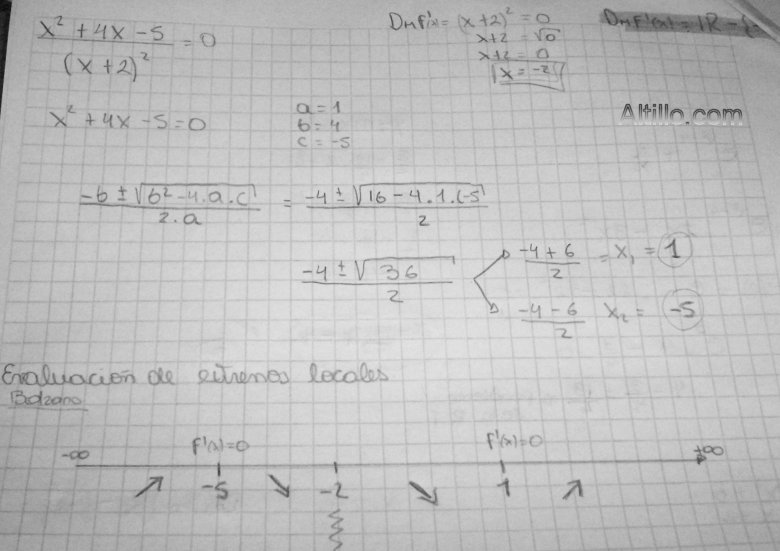 x² + 4x - 5 / (x+2)² = 0
Dmf'(x) = (x+2)² = 0
x+2 = √0
x+2 = 0
x = -2
Dmf'(x) = ℝ - {
x² + 4x - 5 = 0
a = 1
b = 4
c = -5
Altillo.com
-b ± √b² - 4.a.c / 2.a = -4 ± √16 - 4.1.(-5 / 2
-4 ± √36 / 2
-4 + 6 / 2 = x₁ = 1
-4 - 6 / 2 x₂ = -5
Evaluación de extremos locales
Bolzano
-∞ f'(x)=0 f'(x)=0 +∞
↗ -5 ↘ -2 ↘ 1 ↗